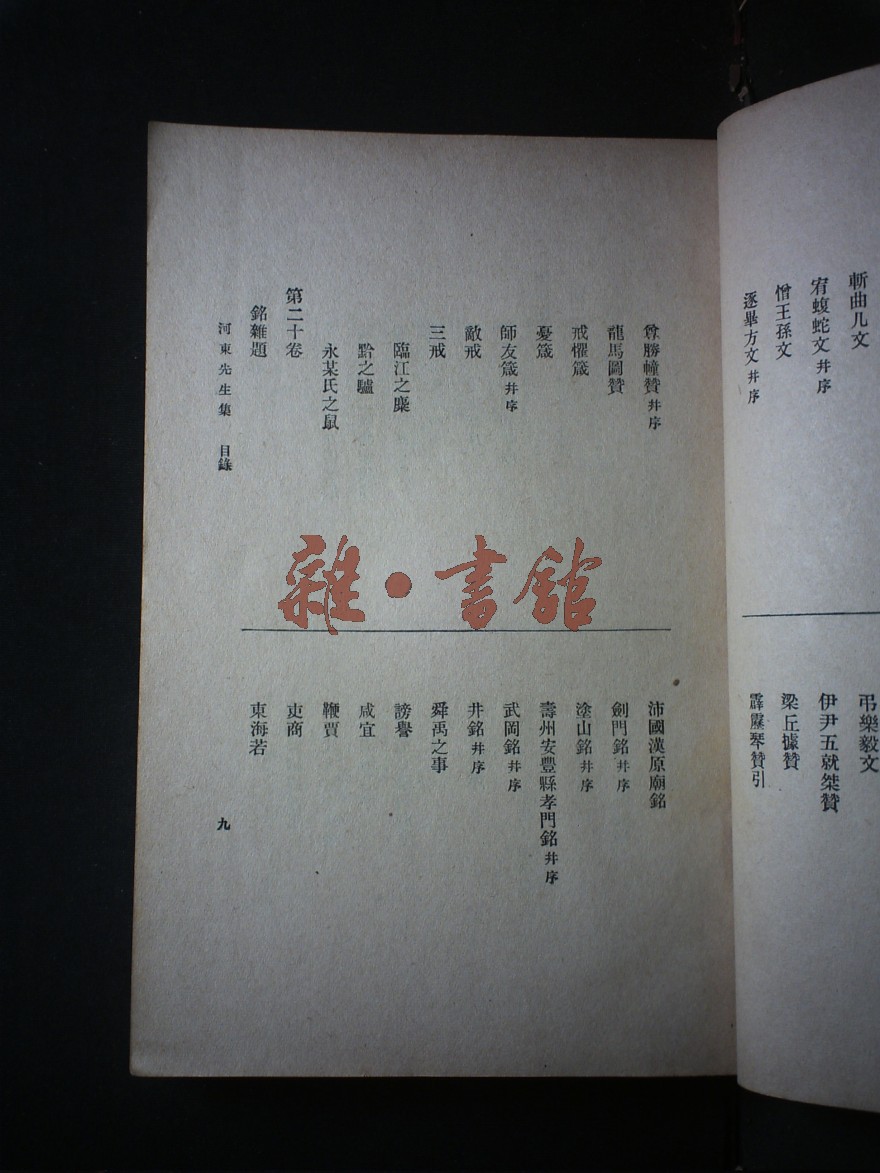 斬曲几文
宥蝮蛇文并序
憎王孫文
逐畢方文并序
弔樂毅文
伊尹五就桀贊
梁丘據贊
霹靂琴贊引
尊勝幢贊并序
龍馬圖贊
戒懼箴
憂箴
師友箴并序
敵戒
三戒
臨江之麋
黔之驢
永某氏之鼠
第二十卷
銘雜題
沛國漢原廟銘
劍門銘并序
塗山銘并序
壽州安豐縣孝門銘并序
武岡銘并序
井銘并序
舜禹之事
謗譽
咸宜
鞭賈
吏商
東海若
河東先生集 目錄
九
雜·書館